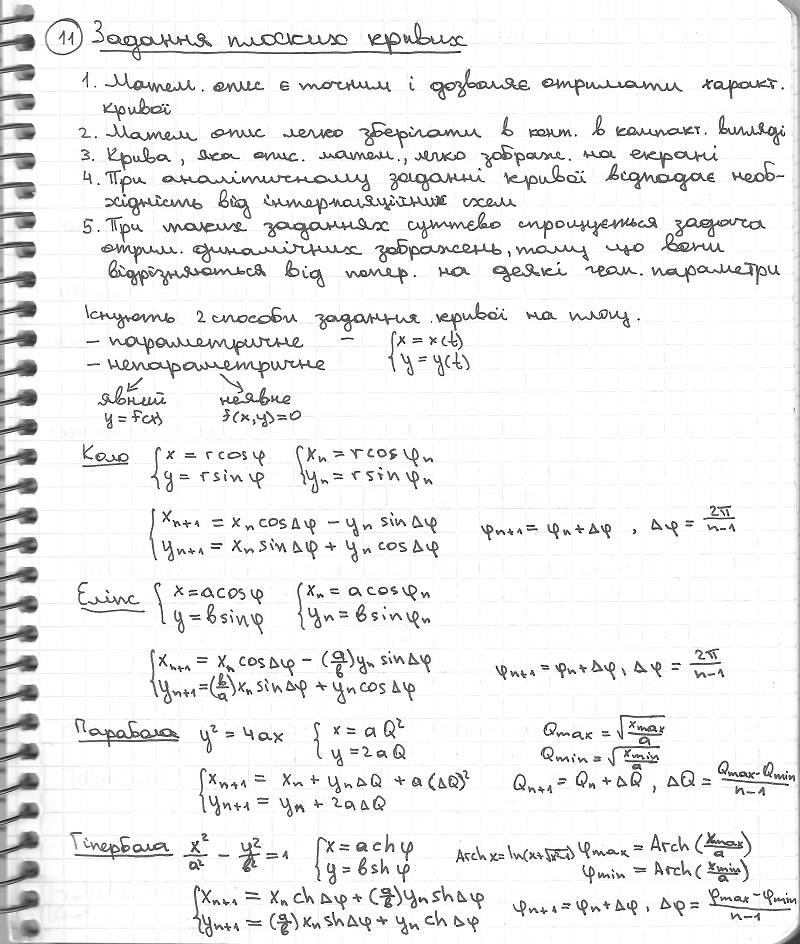 11 Задання плоских кривих
1. Матем. опис є точним і дозволяє отримати характ.
кривої
2. Матем опис легко зберігати в конт. в компакт. вигляді
3. Крива, яка опис. матем., легко зображ. на екрані
4. При аналітичному заданні кривої відпадає необ-
хідність від інтерполяційних схем
5. При таких заданнях суттєво спрощується задача
отрим. динамічних зображень, тому що вони
відрізняються від попер. на деякі геом. параметри
Існують 2 способи задання кривої на площ.
– параметричне – { x = x(t)
– непараметричне y = y(t)
явний неявне
y = f(x) f(x,y)=0
Коло { x = r cos φ { xₙ = r cos φₙ
y = r sin φ yₙ = r sin φₙ
{ xₙ₊₁ = xₙ cos Δφ – yₙ sin Δφ φₙ₊₁ = φₙ + Δφ , Δφ = 2π/(n-1)
yₙ₊₁ = xₙ sin Δφ + yₙ cos Δφ
Еліпс { x = a cos φ { xₙ = a cos φₙ
y = b sin φ yₙ = b sin φₙ
{ xₙ₊₁ = xₙ cos Δφ – (a/b) yₙ sin Δφ φₙ₊₁ = φₙ + Δφ, Δφ = 2π/(n-1)
yₙ₊₁ = (b/a) xₙ sin Δφ + yₙ cos Δφ
Парабола y² = 4ax { x = aQ² Qmax = √(xmax/a)
y = 2aQ Qmin = √(xmin/a)
{ xₙ₊₁ = xₙ + yₙΔQ + a(ΔQ)² Qₙ₊₁ = Qₙ + ΔQ , ΔQ = (Qmax-Qmin)/(n-1)
yₙ₊₁ = yₙ + 2aΔQ
Гіпербола x²/a² – y²/b² = 1 { x = a ch φ Arch x = ln(x+√x²-1) φmax = Arch (xmax/a)
y = b sh φ φmin = Arch (xmin/a)
{ xₙ₊₁ = xₙ ch Δφ + (a/b) yₙ sh Δφ φₙ₊₁ = φₙ + Δφ, Δφ = (φmax-φmin)/(n-1)
yₙ₊₁ = (a/b) xₙ sh Δφ + yₙ ch Δφ